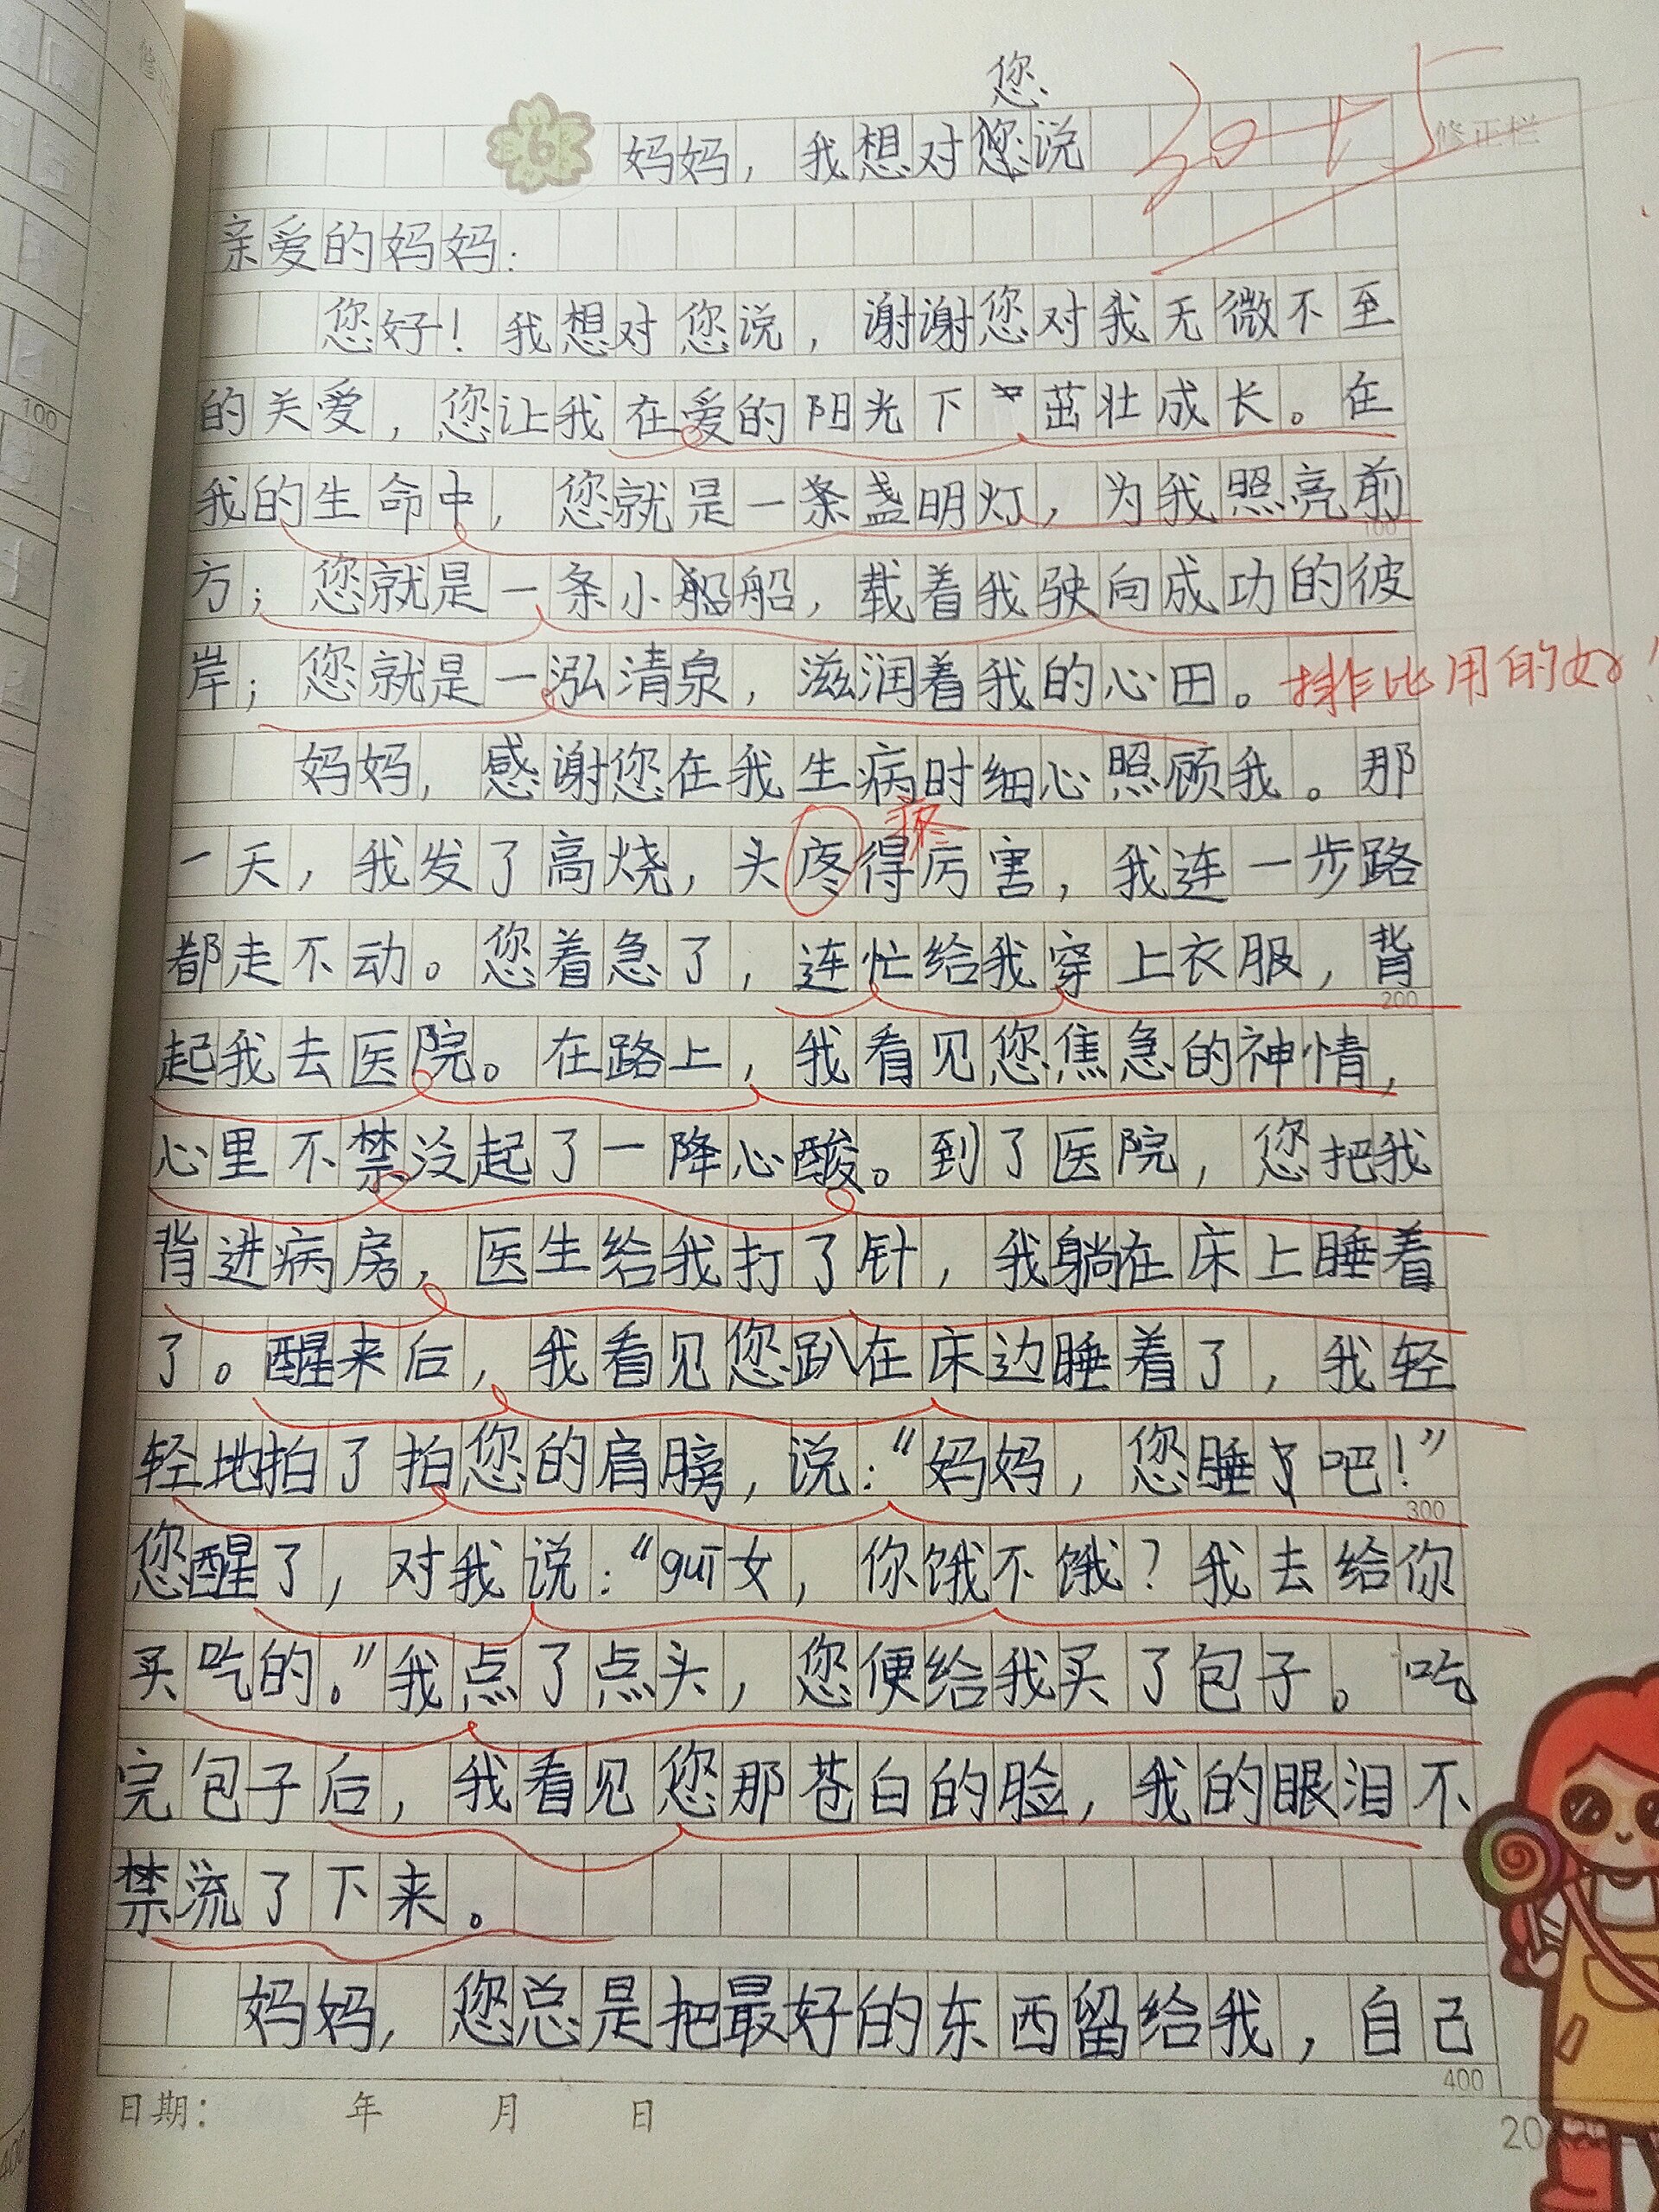 您
6 妈妈，我想对您说 30+5
修正栏
亲爱的妈妈：
您好！我想对您说，谢谢您对我无微不至
的关爱，您让我在爱的阳光下茁壮成长。在
100
我的生命中，您就是一条盏明灯，为我照亮前
100
方；您就是一条小船船，载着我驶向成功的彼
岸；您就是一泓清泉，滋润着我的心田。排比用的好！
妈妈，感谢您在我生病时细心照顾我。那
疼
一天，我发了高烧，头疼得厉害，我连一步路
都走不动。您着急了，连忙给我穿上衣服，背
200
起我去医院。在路上，我看见您焦急的神情，
心里不禁泛起了一降心酸。到了医院，您把我
背进病房，医生给我打了针，我躺在床上睡着
了。醒来后，我看见您趴在床边睡着了，我轻
轻地拍了拍您的肩膀，说：“妈妈，您睡了吧！”
300
您醒了，对我说：“guī女，你饿不饿？我去给你
买吃的。”我点了点头，您便给我买了包子。吃
完包子后，我看见您那苍白的脸，我的眼泪不
禁流了下来。
妈妈，您总是把最好的东西留给我，自己
400
日期： 年 月 日
20